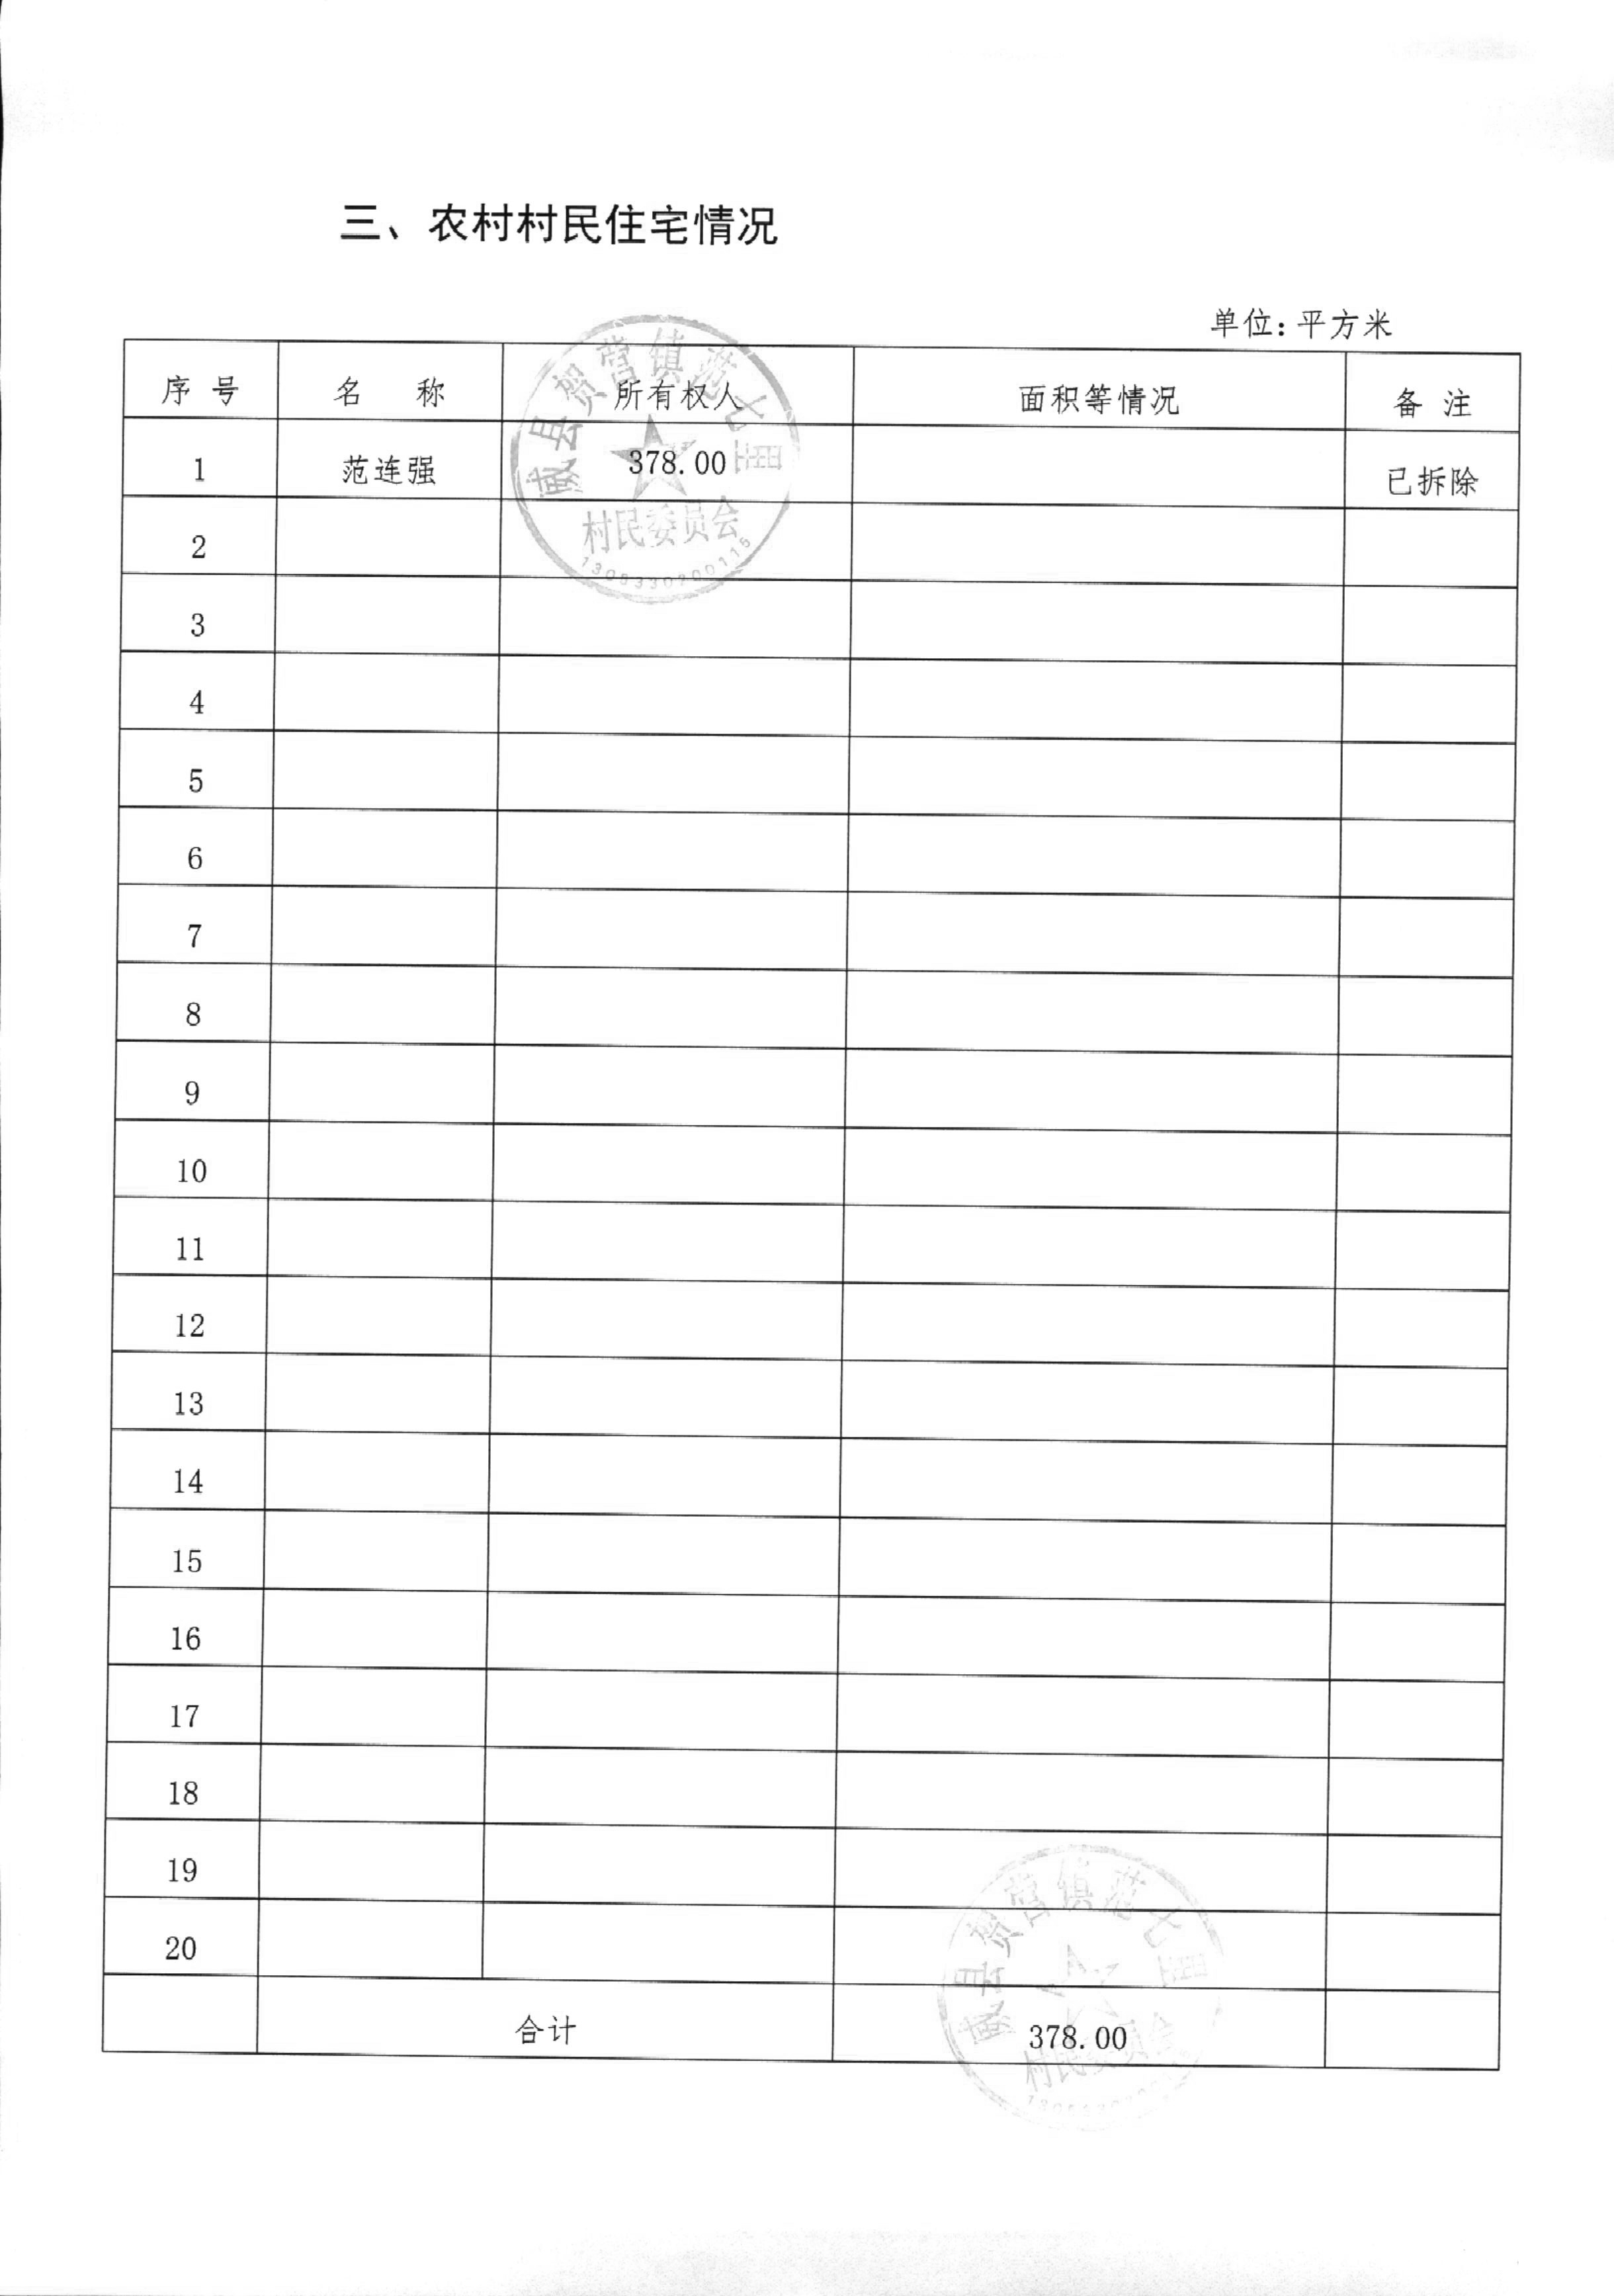 三、农村村民住宅情况
单位:平方米
序号 名称 所有权人 面积等情况 备注
1 范连强 378.00 已拆除
2
3
4
5
6
7
8
9
10
11
12
13
14
15
16
17
18
19
20
合计 378.00
威县贺营镇范七里
村民委员会
威县贺营镇范七里
村民委员会